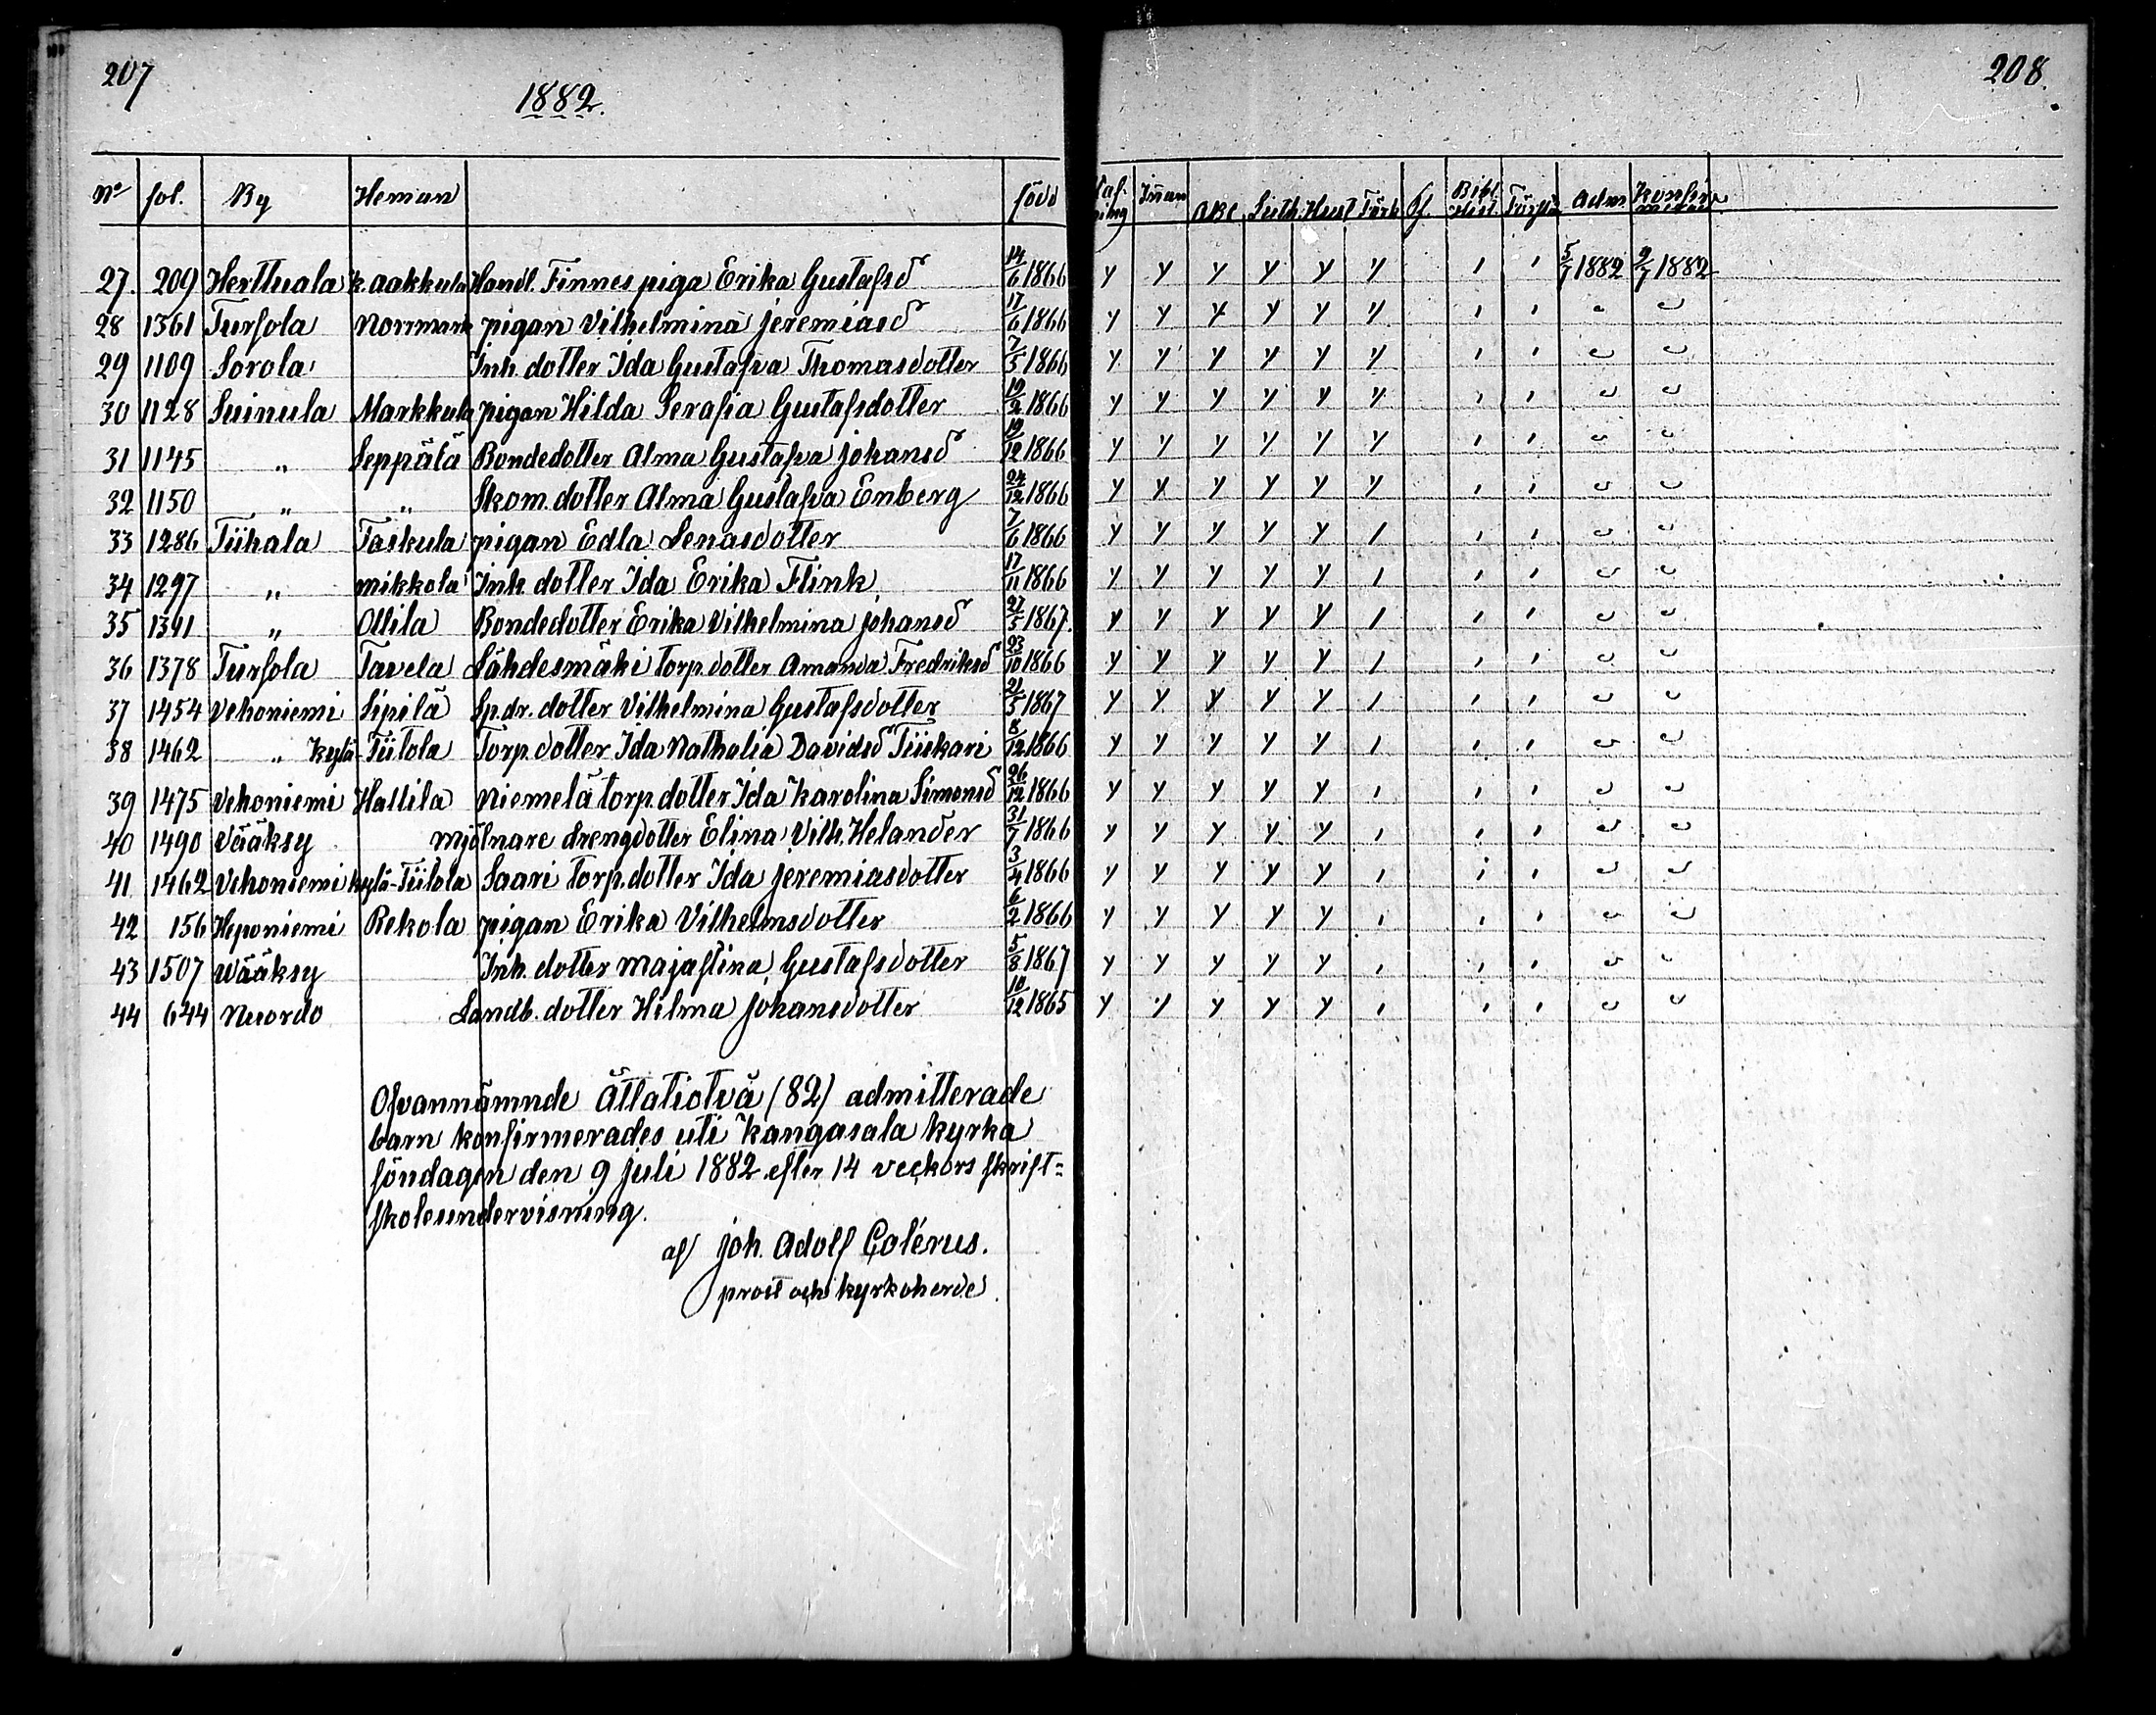 207
1882.
208.
No fol. By Heman född Inan ABC Luth. Hust Förk Bibl. Hist Förstå Adm Konfir
27. 209 Herttuala K. Aakkula Handl. Finnes piga Erika Gustafsd 14/6 1866 y y y y y y ı ı 5/7 1882 9/7 1882
28 1361 Tursola Norrmark pigan Vilhelmina Jeremiasd 17/6 1866 y y y y y y ı ı " "
29 1109 Sorola Inh. dotter Ida Gustafva Thomasdotter 7/5 1866 y y y y y y ı ı " "
30 1128 Suinula Markkula pigan Hilda Serafia Gustafsdotter 19/2 1866 y y y y y y ı ı " "
31 1145 " Seppälä Bondedotter Alma Gustafva Johansd 19/12 1866 y y y y y y ı ı " "
32 1150 " " Skom. dotter Alma Gustafva Enberg 24/12 1866 y y y y y y ı ı " "
33 1286 Tiihala Taskula pigan Edla Lenasdotter 7/6 1866 y y y y y / ı ı " "
34 1297 " Mikkola Inh. dotter Ida Erika Flink 17/11 1866 y y y y y ı ı ı " "
35 1341 " Ollila Bondedotter Erika Vilhelmina Johansd 27/5 1867. y y y y y / ı ı " "
36 1378 Tursola Tavela Lähdesmäki torp. dotter Amanda Fredriksd 23/10 1866 y y y y y / ı ı " "
37 1454 Vehoniemi Sipilä Sp.dr. dotter Vilhelmina Gustafsdotter 21/5 1867 y y y y y / ı ı " "
38 1462 " Kylä-Tiitola Torp. dotter Ida Nathalia Davidsd Tiiskari 8/12 1866 y y y y y / ı ı " "
39 1475 Vehoniemi Hallila Niemelä torp. dotter Ida Karolina Simonsd 26/12 1866 y y y y y ı ı ı " "
40 1490 Vääksy Mjölnare drengdotter Elina Vilh. Helander 31/7 1866 y y y y y ı ı ı " "
41 1462 Vehoniemi kylä-Tiitola Saari torp. dotter Ida Jeremiasdotter 3/4 1866 y y y y y ı ı ı " "
42 156 Heponiemi Rekola pigan Erika Vilhelmsdotter 6/2 1866 y y y y y ı ı ı " "
43 1507 Wääksy Inh. dotter Majastina Gustafsdotter 5/8 1867 y y y y y ı ı ı " "
44 644 Nuordo Landb. dotter Hilma Johansdotter 10/12 1865 y y y y y ı ı ı " "
Ofvannämnde åttatiotvå (82) admitterade
barn konfirmerades uti Kangasala kyrka
söndagen den 9 Juli 1882 efter 14 veckors skrift=
skoleundervisning.
af Joh. Adolf Colérus.
prost och kyrkoherde.